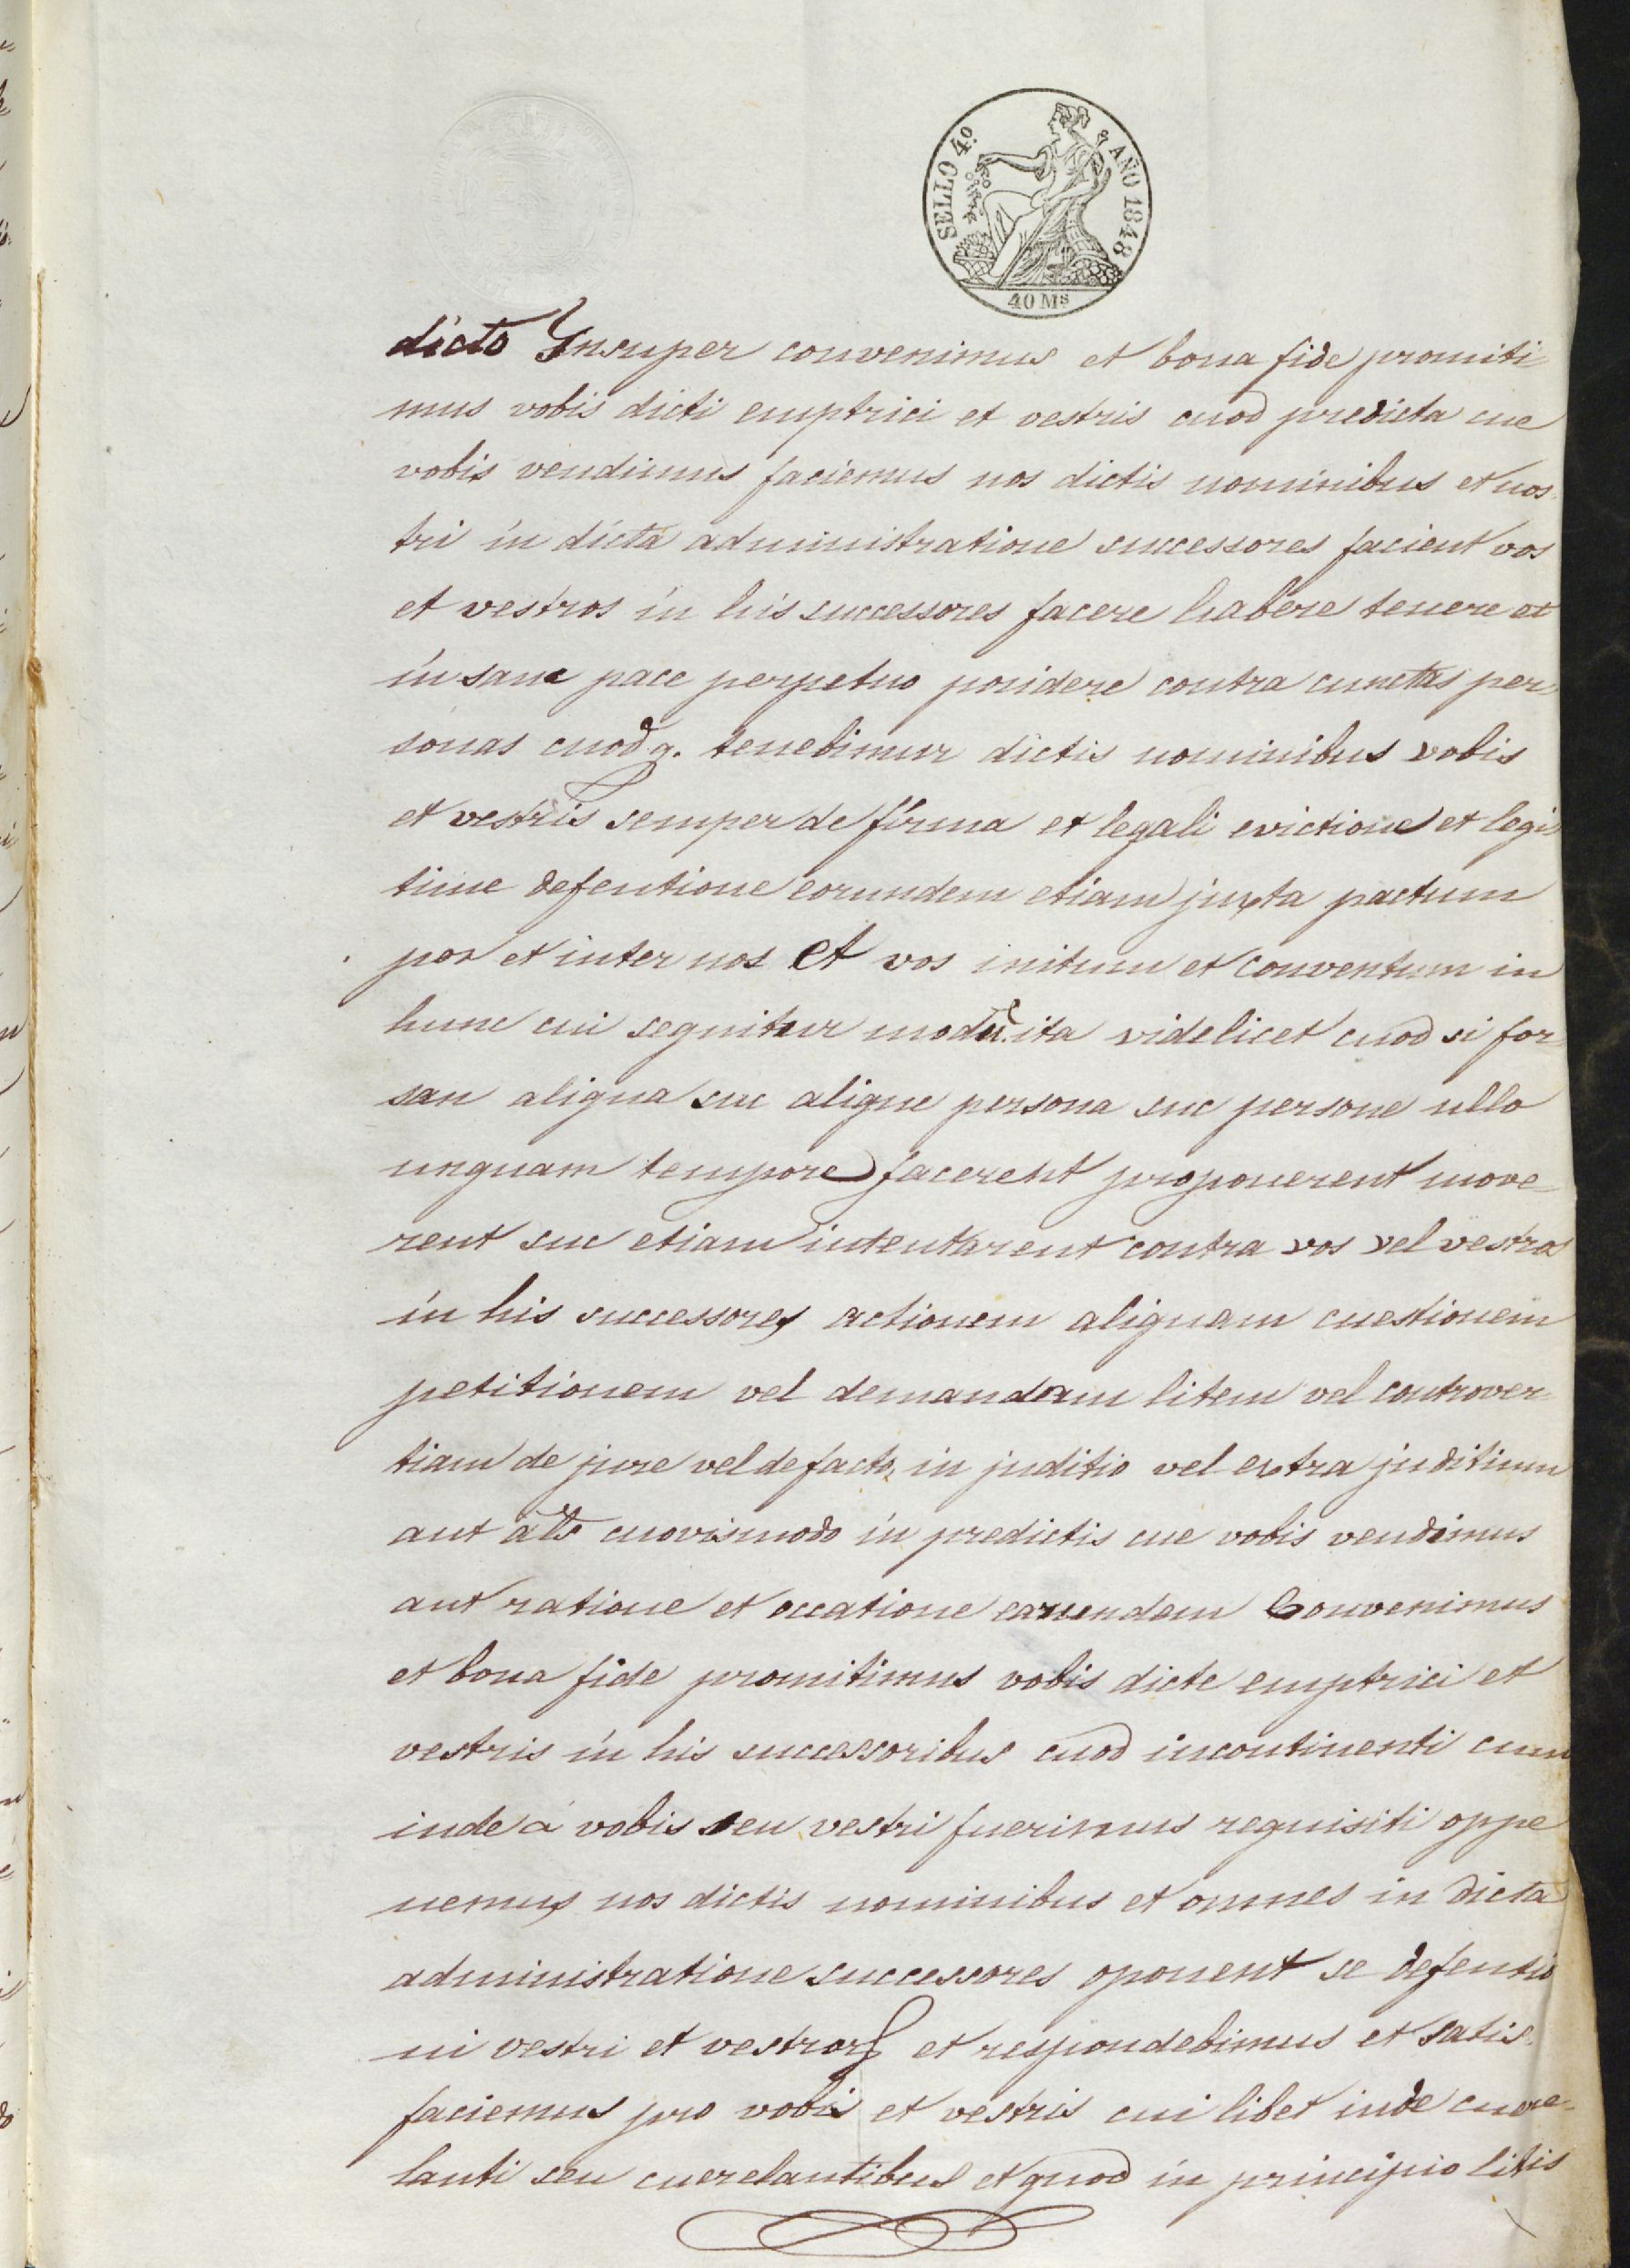 SELLO 4º AÑO 1848
40 Ms
dicto Insuper convenimus et bona fide promiti
mus vobis dicti emptrici et vestris cuod predicta cue
vobis vendimus faciemus nos dictis nominibus et nos-
tri in dicta administratione successores facient vos
et vestros in his successores facere habere tenere et
in sane pace perpetuo posidere contra cunctas per
sonas cuod q. tenebimur dictis nominibus vobis
et vestris semper de firma et legali evictione et legi
time defentione eorundem etiam juxta pactum
por et inter nos et vos initum et conventum in
hunc cui seguitur modũ ita videlicet cuod si for
san aligua suc aligue persona suc persone ullo
unguam tempore facerent proponerent move-
rent suc etiam intentarent contra vos vel vestros
in his successores actionem aliguam cuestionem
petitionem vel demandam litem vel controver-
tiam de jure vel de facto, in juditio vel extra juditium
aut als cuovismodo in predictis cue vobis vendimus
aut ratione et occatione earundem Convenimus
et bona fide promitimus vobis dicte emptrici et
vestris in his successoribus cuod incontinenti cum
inde á vobis seu vestri fuerimus reguisiti oppe
nemus nos dictis nominibus et omnes in dicta
administratione successores oponent se defentio
ni vestri et vestror et respondebimus et satis-
faciemus pro vobis et vestris cui libet inde cuere-
lanti seu cuerelantibus et quod in principio litis